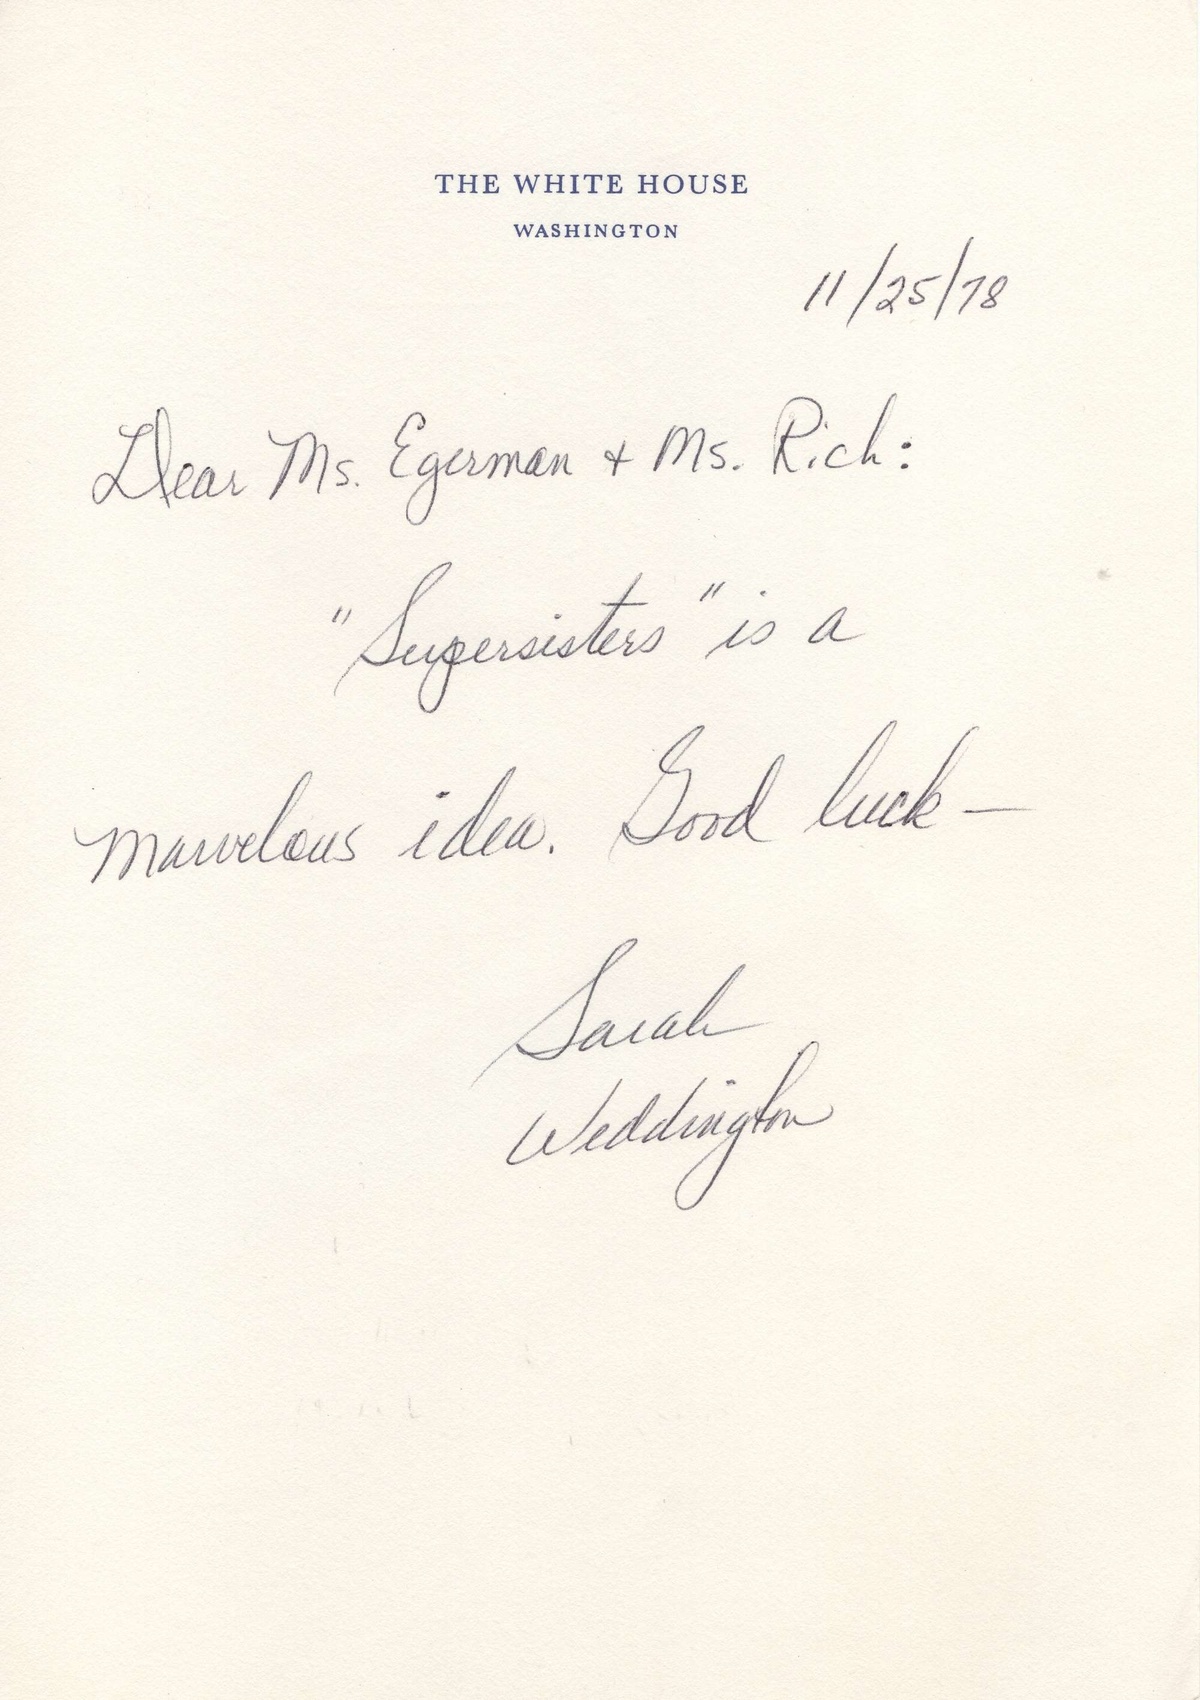 THE WHITE HOUSE
WASHINGTON
11/25/78
Dear Ms. Egerman + Ms. Rich:
"Supersisters" is a
marvelous idea. Good luck—
Sarah
Weddington